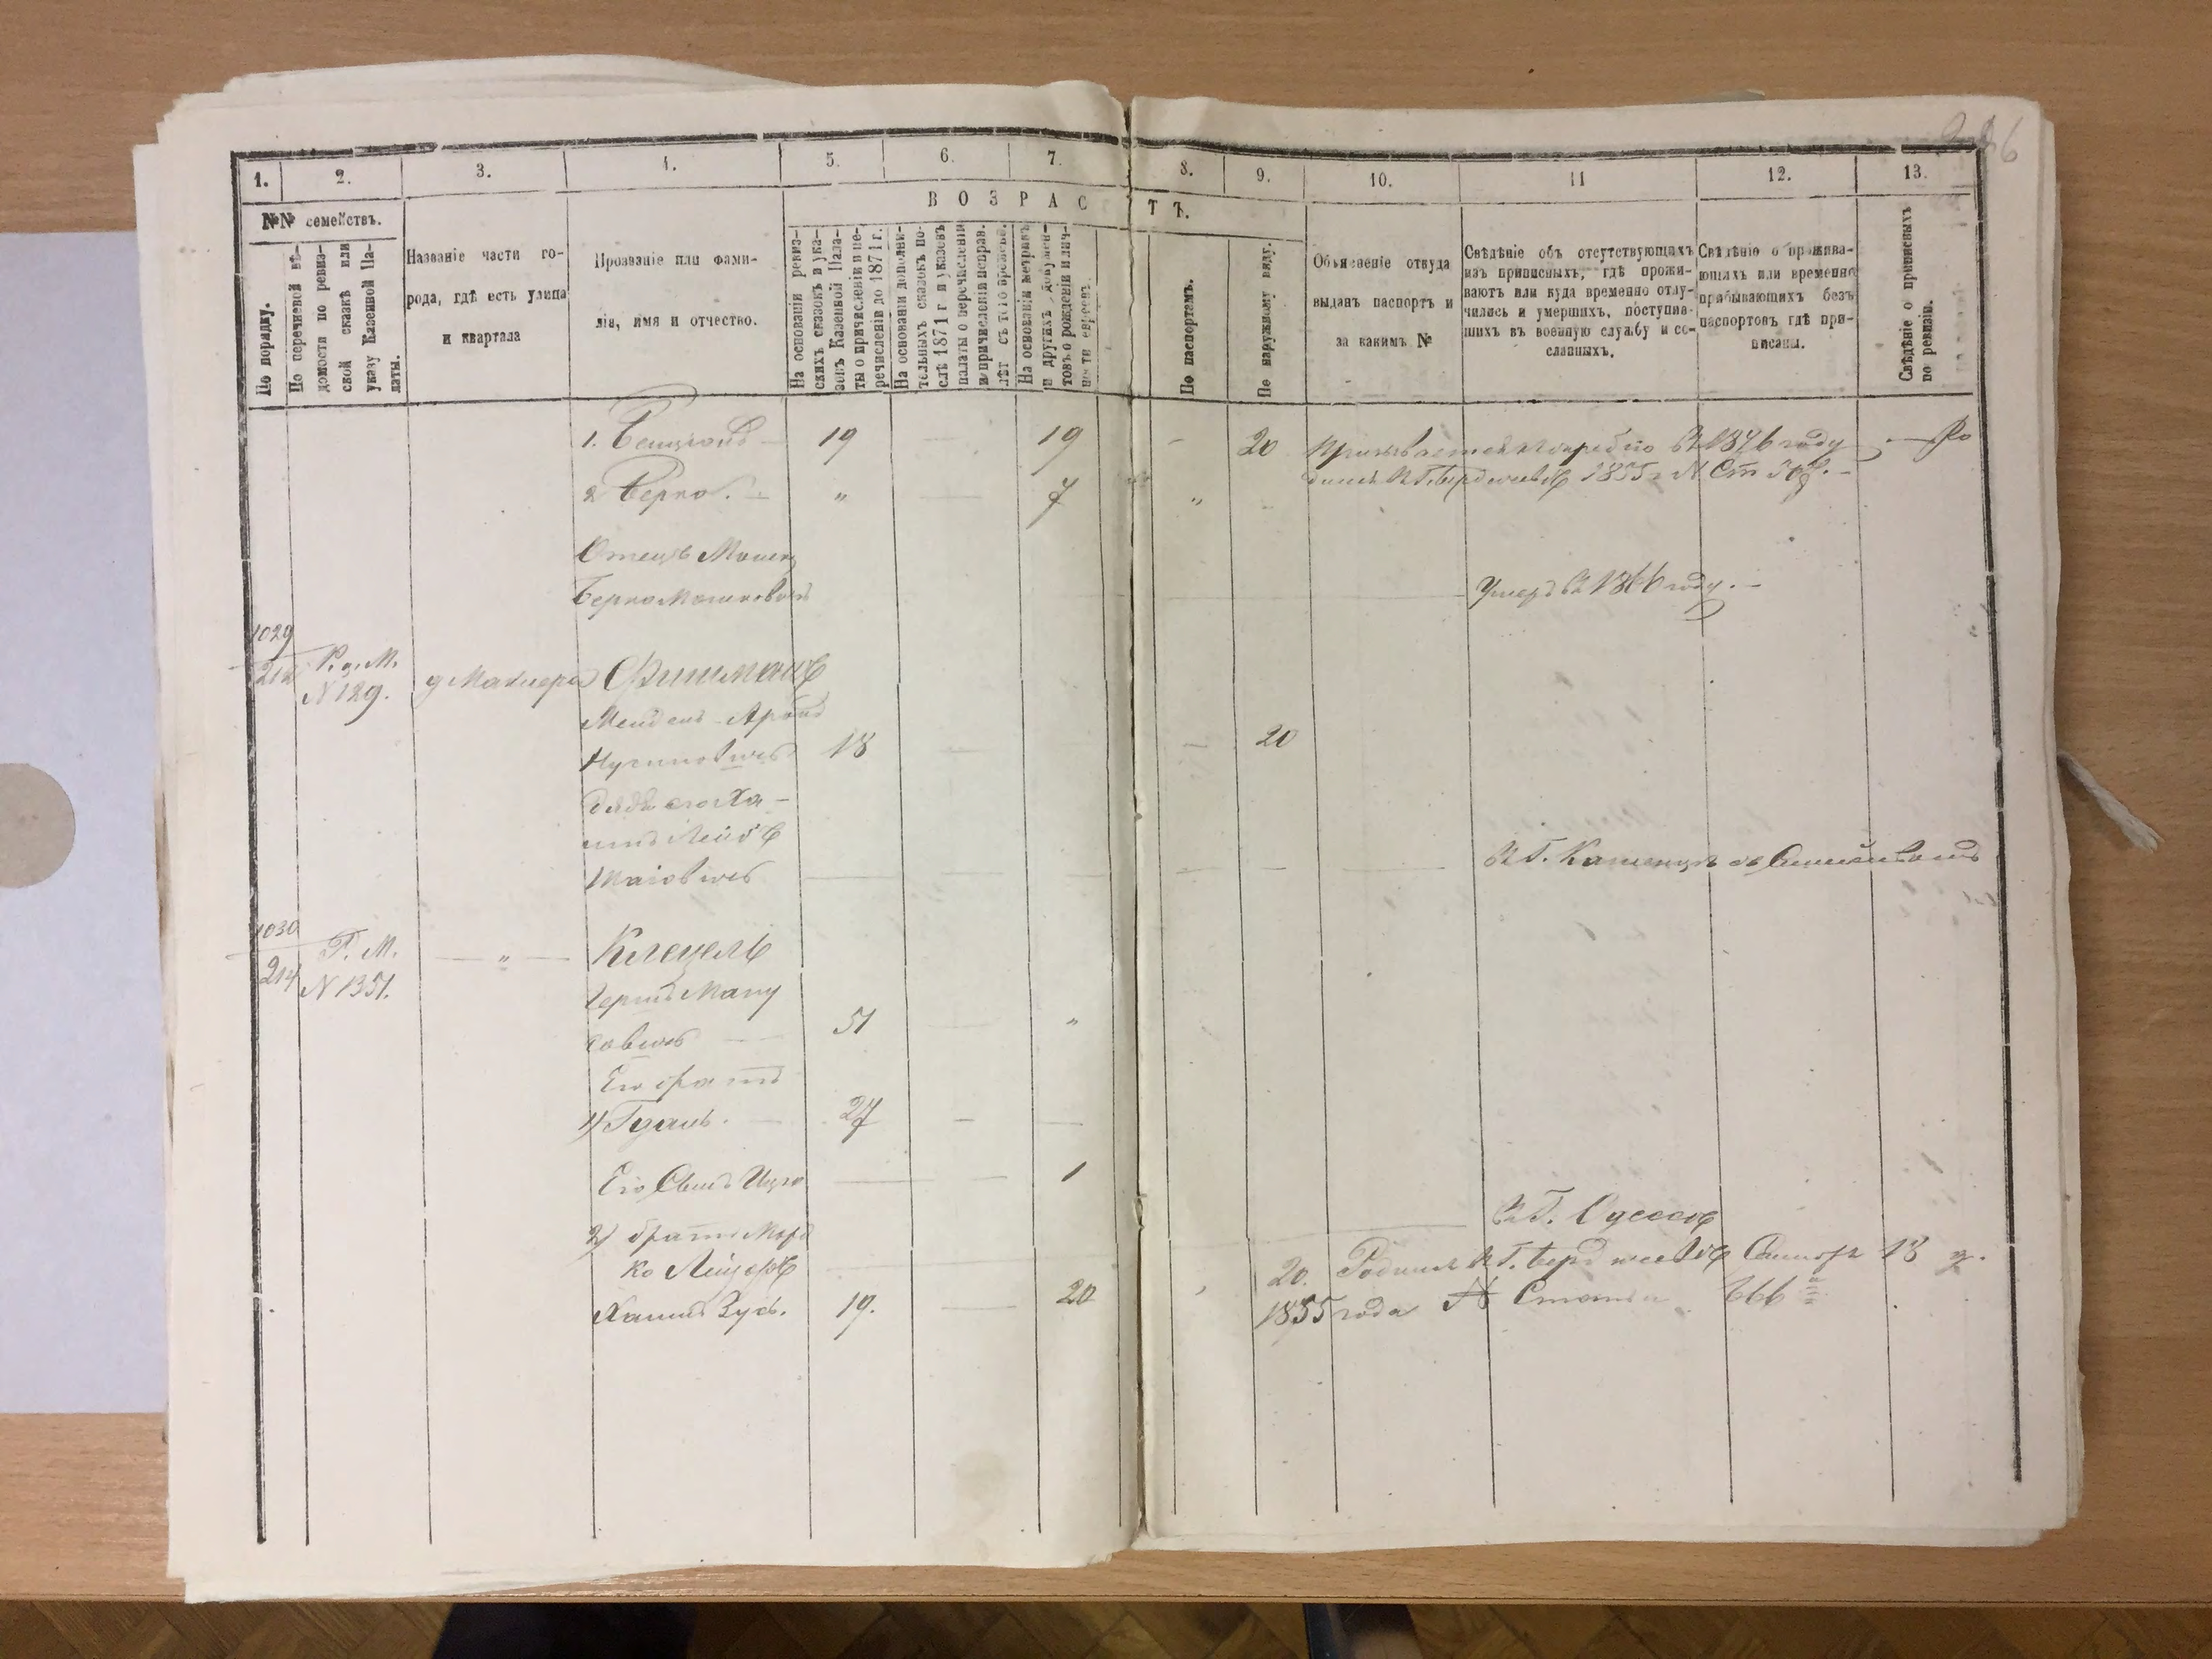 226
1. 2. 3. 4. 5. 6. 7. 8. 9. 10. 11 12. 13.
ВОЗРАСТЪ.
№№ семействъ.
По порядку.
По перечневой вѣ-
домости по ревиз-
ской сказкѣ или
указу Казенной Па-
латы.
Названіе части го-
рода, гдѣ есть улица
и квартала
Прозваніе или фами-
лія, имя и отчество.
На основаніи ревиз-
скихъ сказокъ и ука-
зовъ Казенной Пала-
ты о причисленіи и пе-
речисленіи до 1871 г.
На основаніи дополни-
тельныхъ сказокъ по-
слѣ 1871 г. и указовъ
палаты о перечисленіи
и причисленіи неправ.
лѣт съ того времени.
На основаніи метрикъ
и другихъ докумен-
товъ о рожденіи и лич-
ности евреевъ.
По паспортамъ.
По наружному виду.
Объясненіе откуда
выданъ паспортъ и
за какимъ №
Свѣдѣніе объ отсутствующихъ
изъ приписныхъ, гдѣ прожи-
ваютъ или куда временно отлу-
чились и умершихъ, поступив-
шихъ въ военную службу и со-
сланныхъ.
Свѣдѣніе о прожива-
ющихъ или временно
прибывающихъ безъ
паспортовъ гдѣ при-
писаны.
Свѣдѣніе о приписныхъ
по ревизіи.
1. Бенціонъ — 19 — 19 - 20 Призывается к жребію въ 1876 году
2 Берко. — „ — 7 „ въ Г. Бердичевѣ 1855 г. № Ст
Отецъ Мошко
Берко Мошковичъ Умеръ въ 1866 году. —
1029
212 Р. д. М. № 129. Фишманъ
Мендель-Аронъ
Нусиновичъ 18 — - 20
дядя его Ха-
имъ Лейбъ
— — — въ Г. Каменцѣ
1030
214 Р. М. № 1351. — „ — Клецель
Герш Ману
совичъ — 51 — „
Его братъ
1) — 27 — —
Его Сынъ Ицко — — 1
2) братъ Морд
ко Лейзеръ — — въ Г. Одессѣ
Хаимъ Зусь. 19. — 20 20. Родился въ Г. Бердичевѣ 18
1855 года № Статьи 666